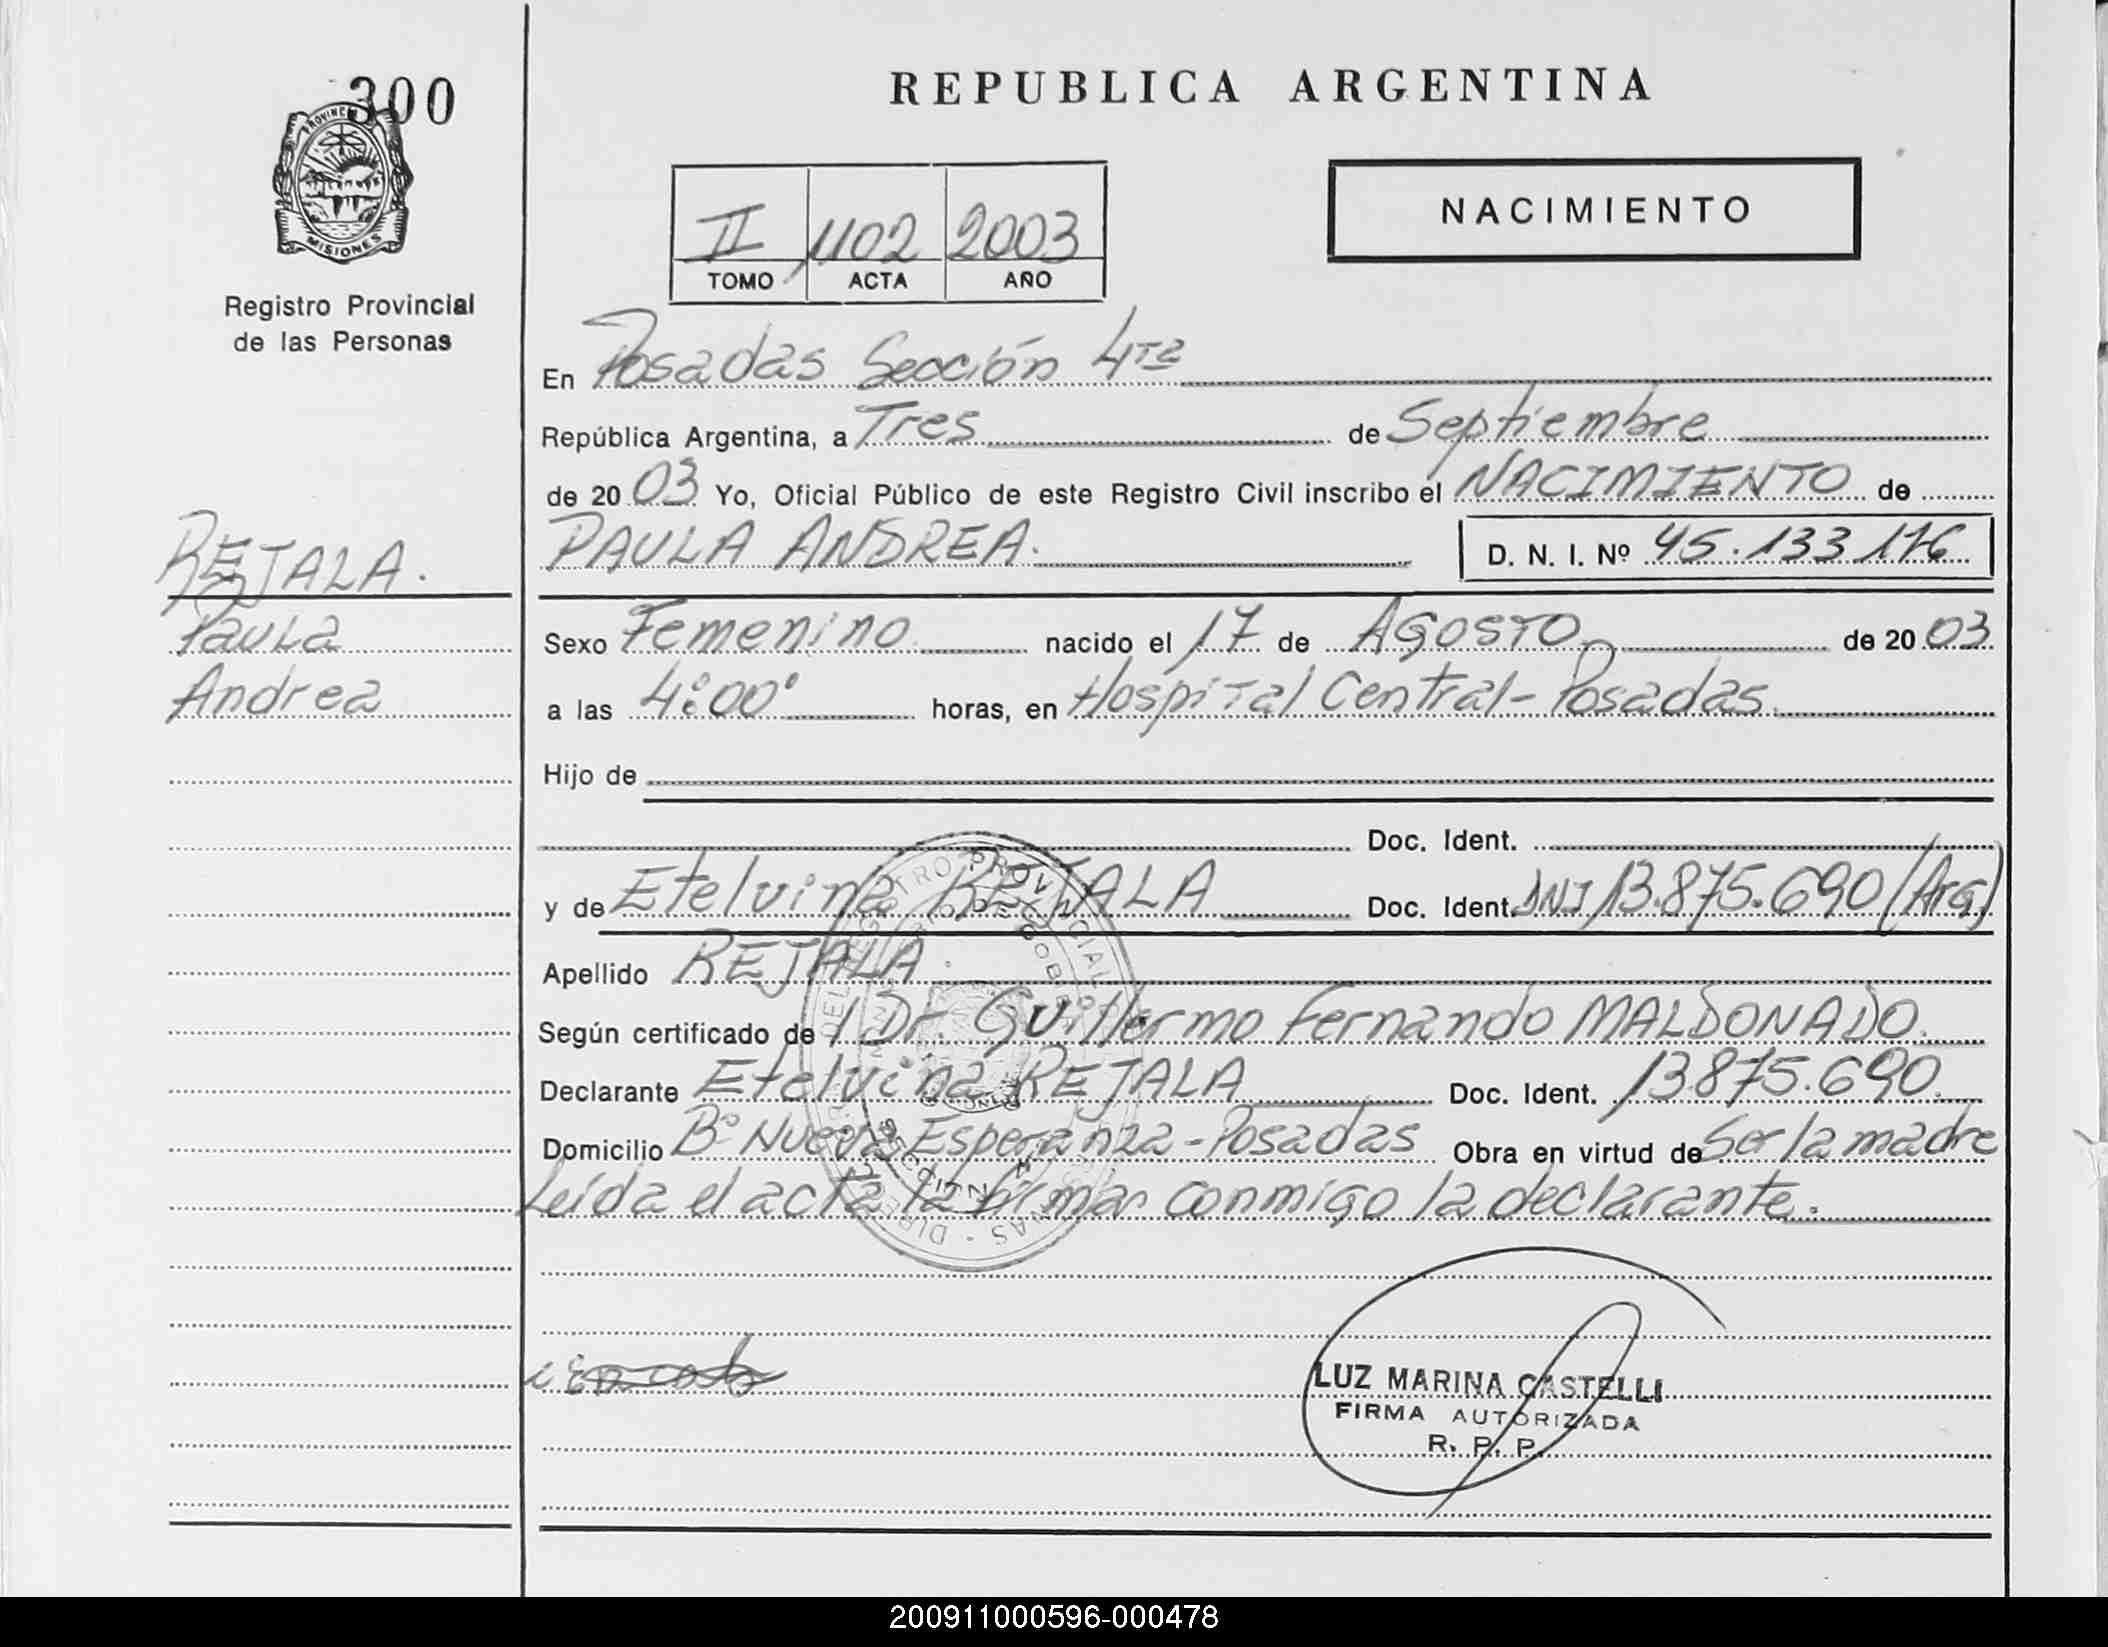 300
PROVINCIA
MISIONES
Registro Provincial
de las Personas
REPUBLICA ARGENTINA
II 1102 2003
TOMO ACTA AÑO
NACIMIENTO
En Posadas Sección 4ta
República Argentina, a Tres de Septiembre
de 2003 Yo, Oficial Público de este Registro Civil inscribo el NACIMIENTO de
PAULA ANDREA. D. N. I. Nº 45.133.176
REJALA.
Paula
Andrea
Sexo Femenino nacido el 17 de AGOSTO de 2003
a las 4:00' horas, en Hospital Central - Posadas.
Hijo de
Doc. Ident.
y de Etelvina REJALA Doc. Ident. DNI 13.875.690 (Arg)
Apellido REJALA.
Según certificado del Dr. Guillermo Fernando MALDONADO.
Declarante Etelvina REJALA Doc. Ident. 13875.690.
Domicilio Bº Nueva Esperanza - Posadas Obra en virtud de Ser la madre
Leída el acta la firmar conmigo la declarante.
LUZ MARINA CASTELLI
FIRMA AUTORIZADA
R. P. P.
200911000596-000478